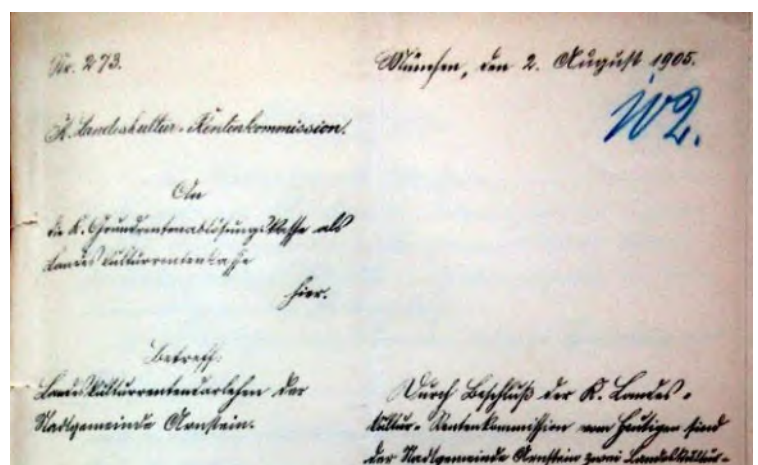 Nr. 273.
München, den 2. August 1905.
K. Landeskultur-Rentenkommission.
An
die K. Grundrentenablösungskasse als
Landeskulturrentenkasse
hier.
Betreff:
Landeskulturrentendarlehen der
Stadtgemeinde Arnstein.
Durch Beschluß der K. Landes-
kultur-Rentenkommission vom Heutigen sind
der Stadtgemeinde Arnstein zwei Landeskultur-